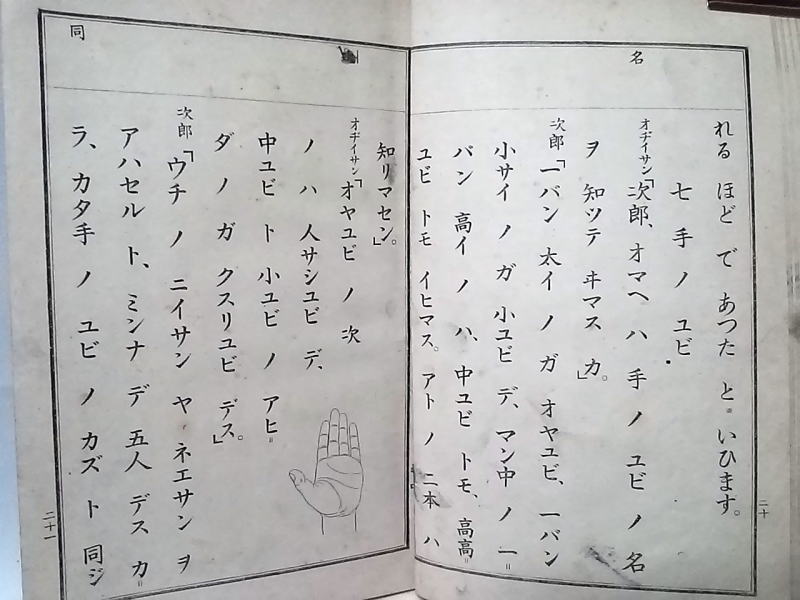 名
れる ほど で あつた と゠ いひます。
七 手 ノ ユビ
オヂイサン「次郎、オマヘ ハ 手 ノ ユビ ノ 名
ヲ 知ツテ ヰマス カ。」
次郎「一バン 太イ ノ ガ オヤユビ、一バン
小サイ ノ ガ 小ユビ デ、マン中 ノ 一゠
バン 高イ ノ ハ、中ユビ トモ、高高゠
ユビ トモ イヒマス。アト ノ 二本 ハ
二十
同
知リマセン。」
オヂイサン「オヤユビ ノ 次
ノ ハ 人サシユビ デ、
中ユビ ト 小ユビ ノ アヒ゠
ダ ノ ガ クスリユビ デス。」
次郎「ウチ ノ ニイサン ヤ ネエサン ヲ
アハセル ト、ミンナ デ 五人 デス カ゠
ラ、カタ手 ノ ユビ ノ カズ ト 同ジ
二十一